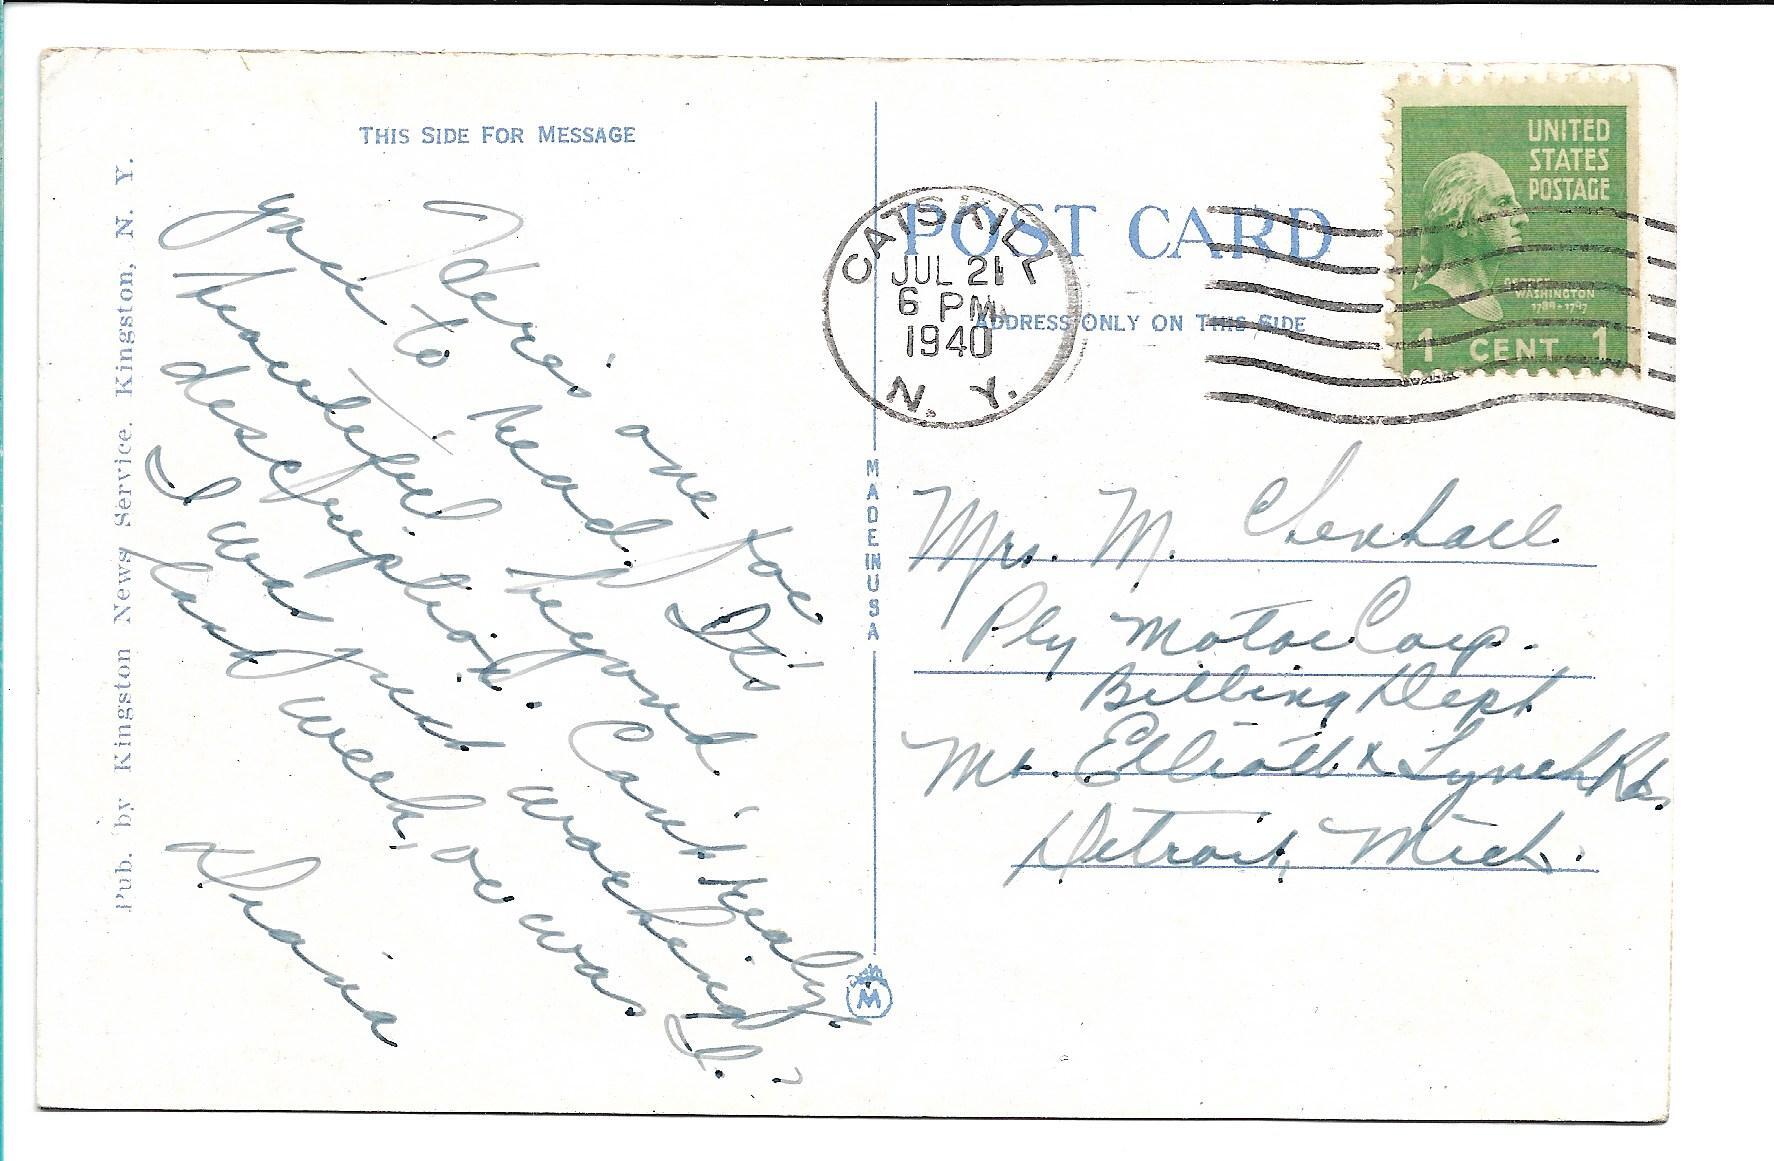 THIS SIDE FOR MESSAGE
Pub. by Kingston News Service, Kingston, N. Y.
Here's one for
you to read. It's
beautiful beyond
description. Can't realy.
I was just working
last week, or was I.?
Diana
MADE IN USA
M
POST CARD
ADDRESS ONLY ON THIS SIDE
CATSKILL
JUL 21
6 PM
1940
N. Y.
UNITED
STATES
POSTAGE
GEORGE
WASHINGTON
1789-1797
1 CENT 1
Mrs. M.
Ply Motor Corp.
Billing Dept
Mt. Elliott & Lynch Rd.
Detroit, Mich.